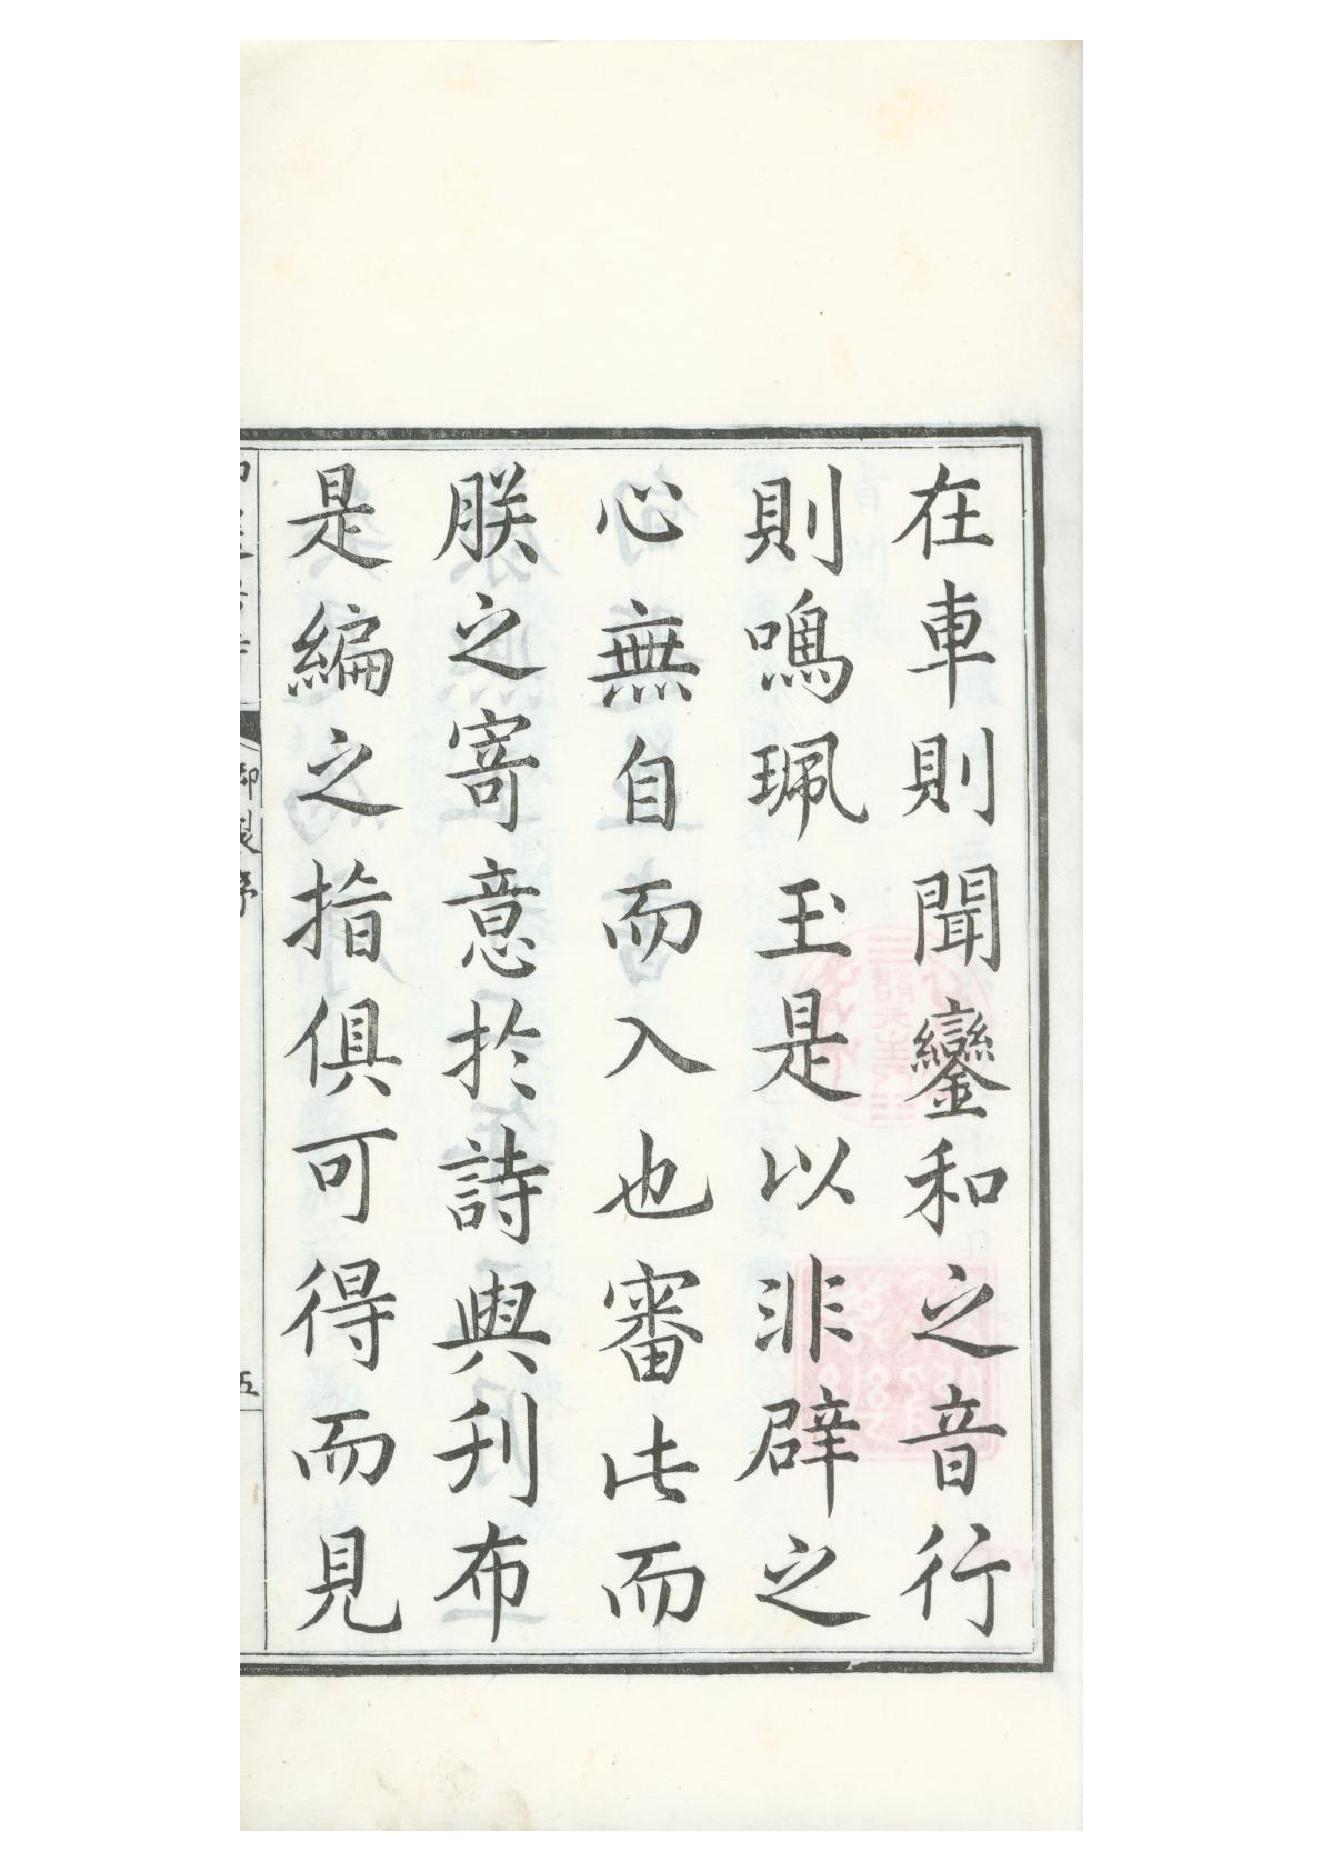 在車則聞鑾和之音行
則鳴珮玉是以非辟之
心無自而入也審此而
朕之寄意於詩與刋布
是編之指俱可得而見
御製序
五